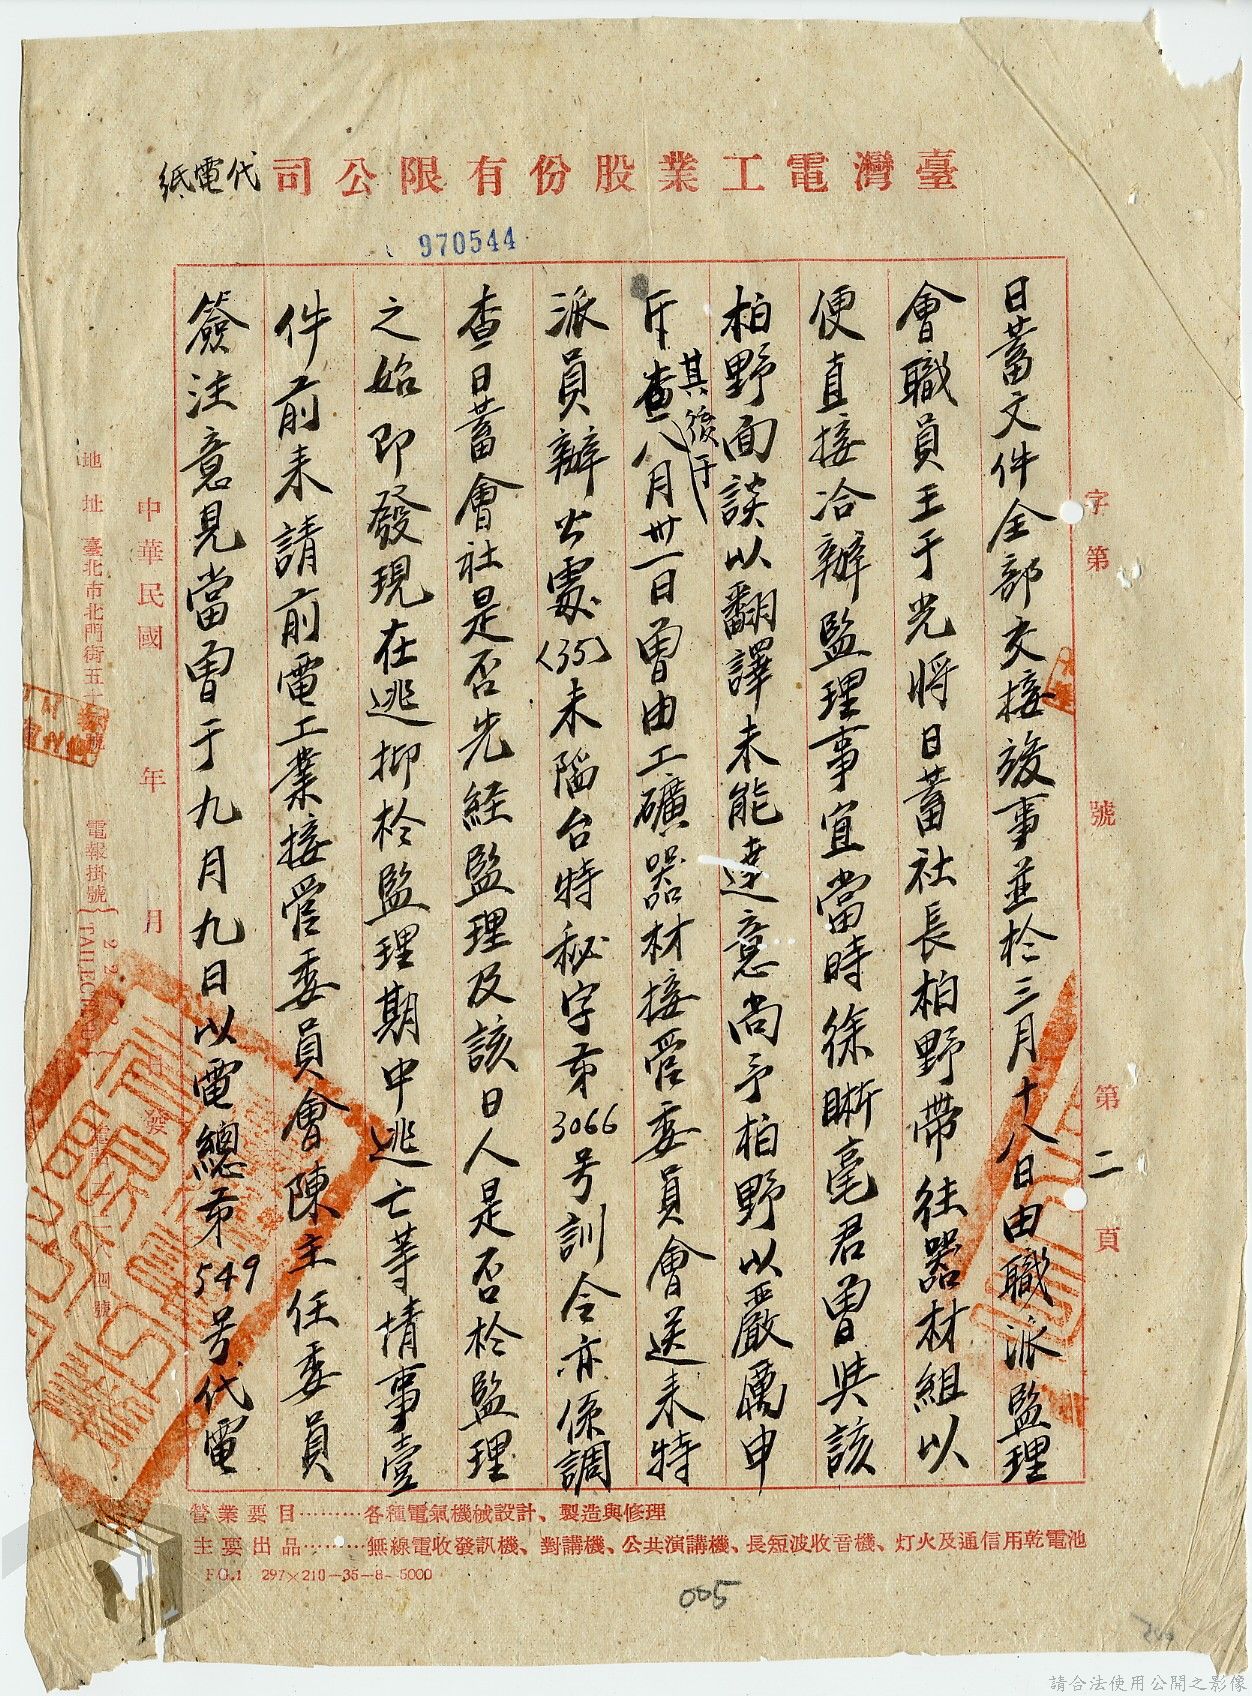 臺灣電工業股份有限公司
代電紙
970544
字第 號 第二頁
日蓄文件全部交接竣事並於三月十八日由職派監理
會職員王于光將日蓄社長柏野帶往器材組以
便直接洽辦監理事宜當時徐晰毫君曾與該
柏野面談以翻譯未能達意尚予柏野以嚴厲申
斥其後于八月卅一日曾由工礦器材接管委員會送来特
派員辦公處(35)未陷台特秘字第3066号訓令亦係調
查日蓄會社是否先経監理及該日人是否於監理
之始即發現在逃抑於監理期中逃亡等情事壹
件前来請前電工業接管委員會陳主任委員
簽注意見當曾于九月九日以電總第549号代電
中華民國 年 月 日發
地址 臺北市北門街五一號
電報掛號
營業要目………各種電氣機械設計、製造與修理
主要出品………無線電收發訊機、對講機、公共演講機、長短波收音機、灯火及通信用乾電池
FG.1 297×210-35-8-5000
005
請合法使用公開之影像